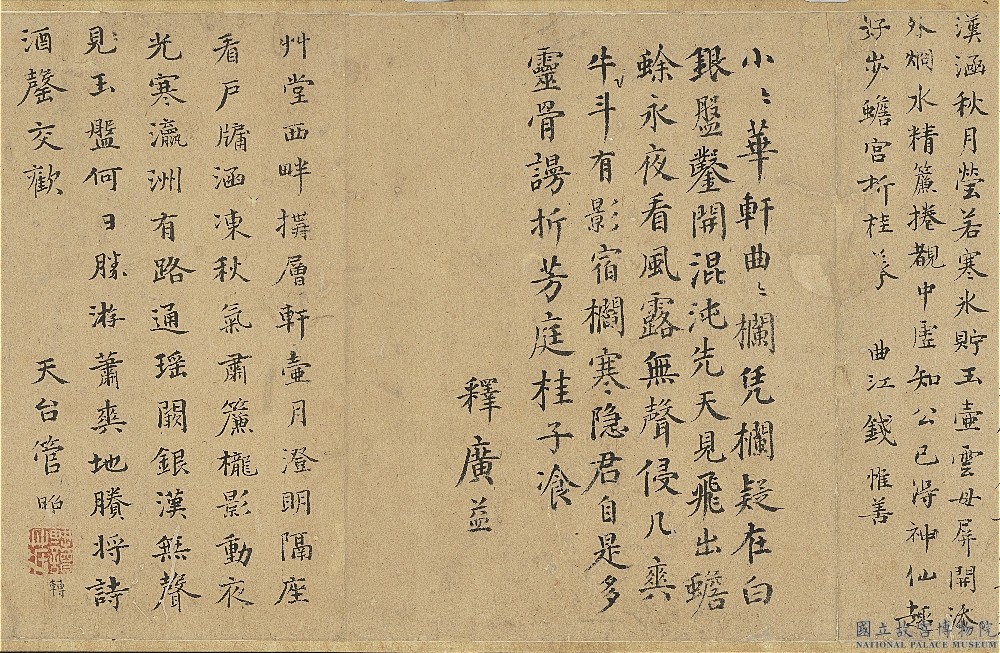 漢涵秋月瑩若寒氷貯玉壺雲母屏開滲
外烱水精簾捲覩中虛知公已得神仙趣
好步蟾宮折桂 曲江錢惟善
小〻華軒曲〻欄凭欄疑在白
銀盤鑿開混沌先天見飛出蟾
蜍永夜看風露無聲侵几爽
牛斗有影宿欄寒隐君自是多
靈骨謾折芳庭桂子飡
釋廣益
艸堂西畔搆層軒壷月澄明隔座
看戸牖涵凍秋氣肅簾櫳影動夜
光寒瀛洲有路通瑶闕銀漢無聲
見玉盤何日勝游蕭爽地賸将詩
酒罄交歡 天台管
轉
國立故宮博物院
NATIONAL PALACE MUSEUM